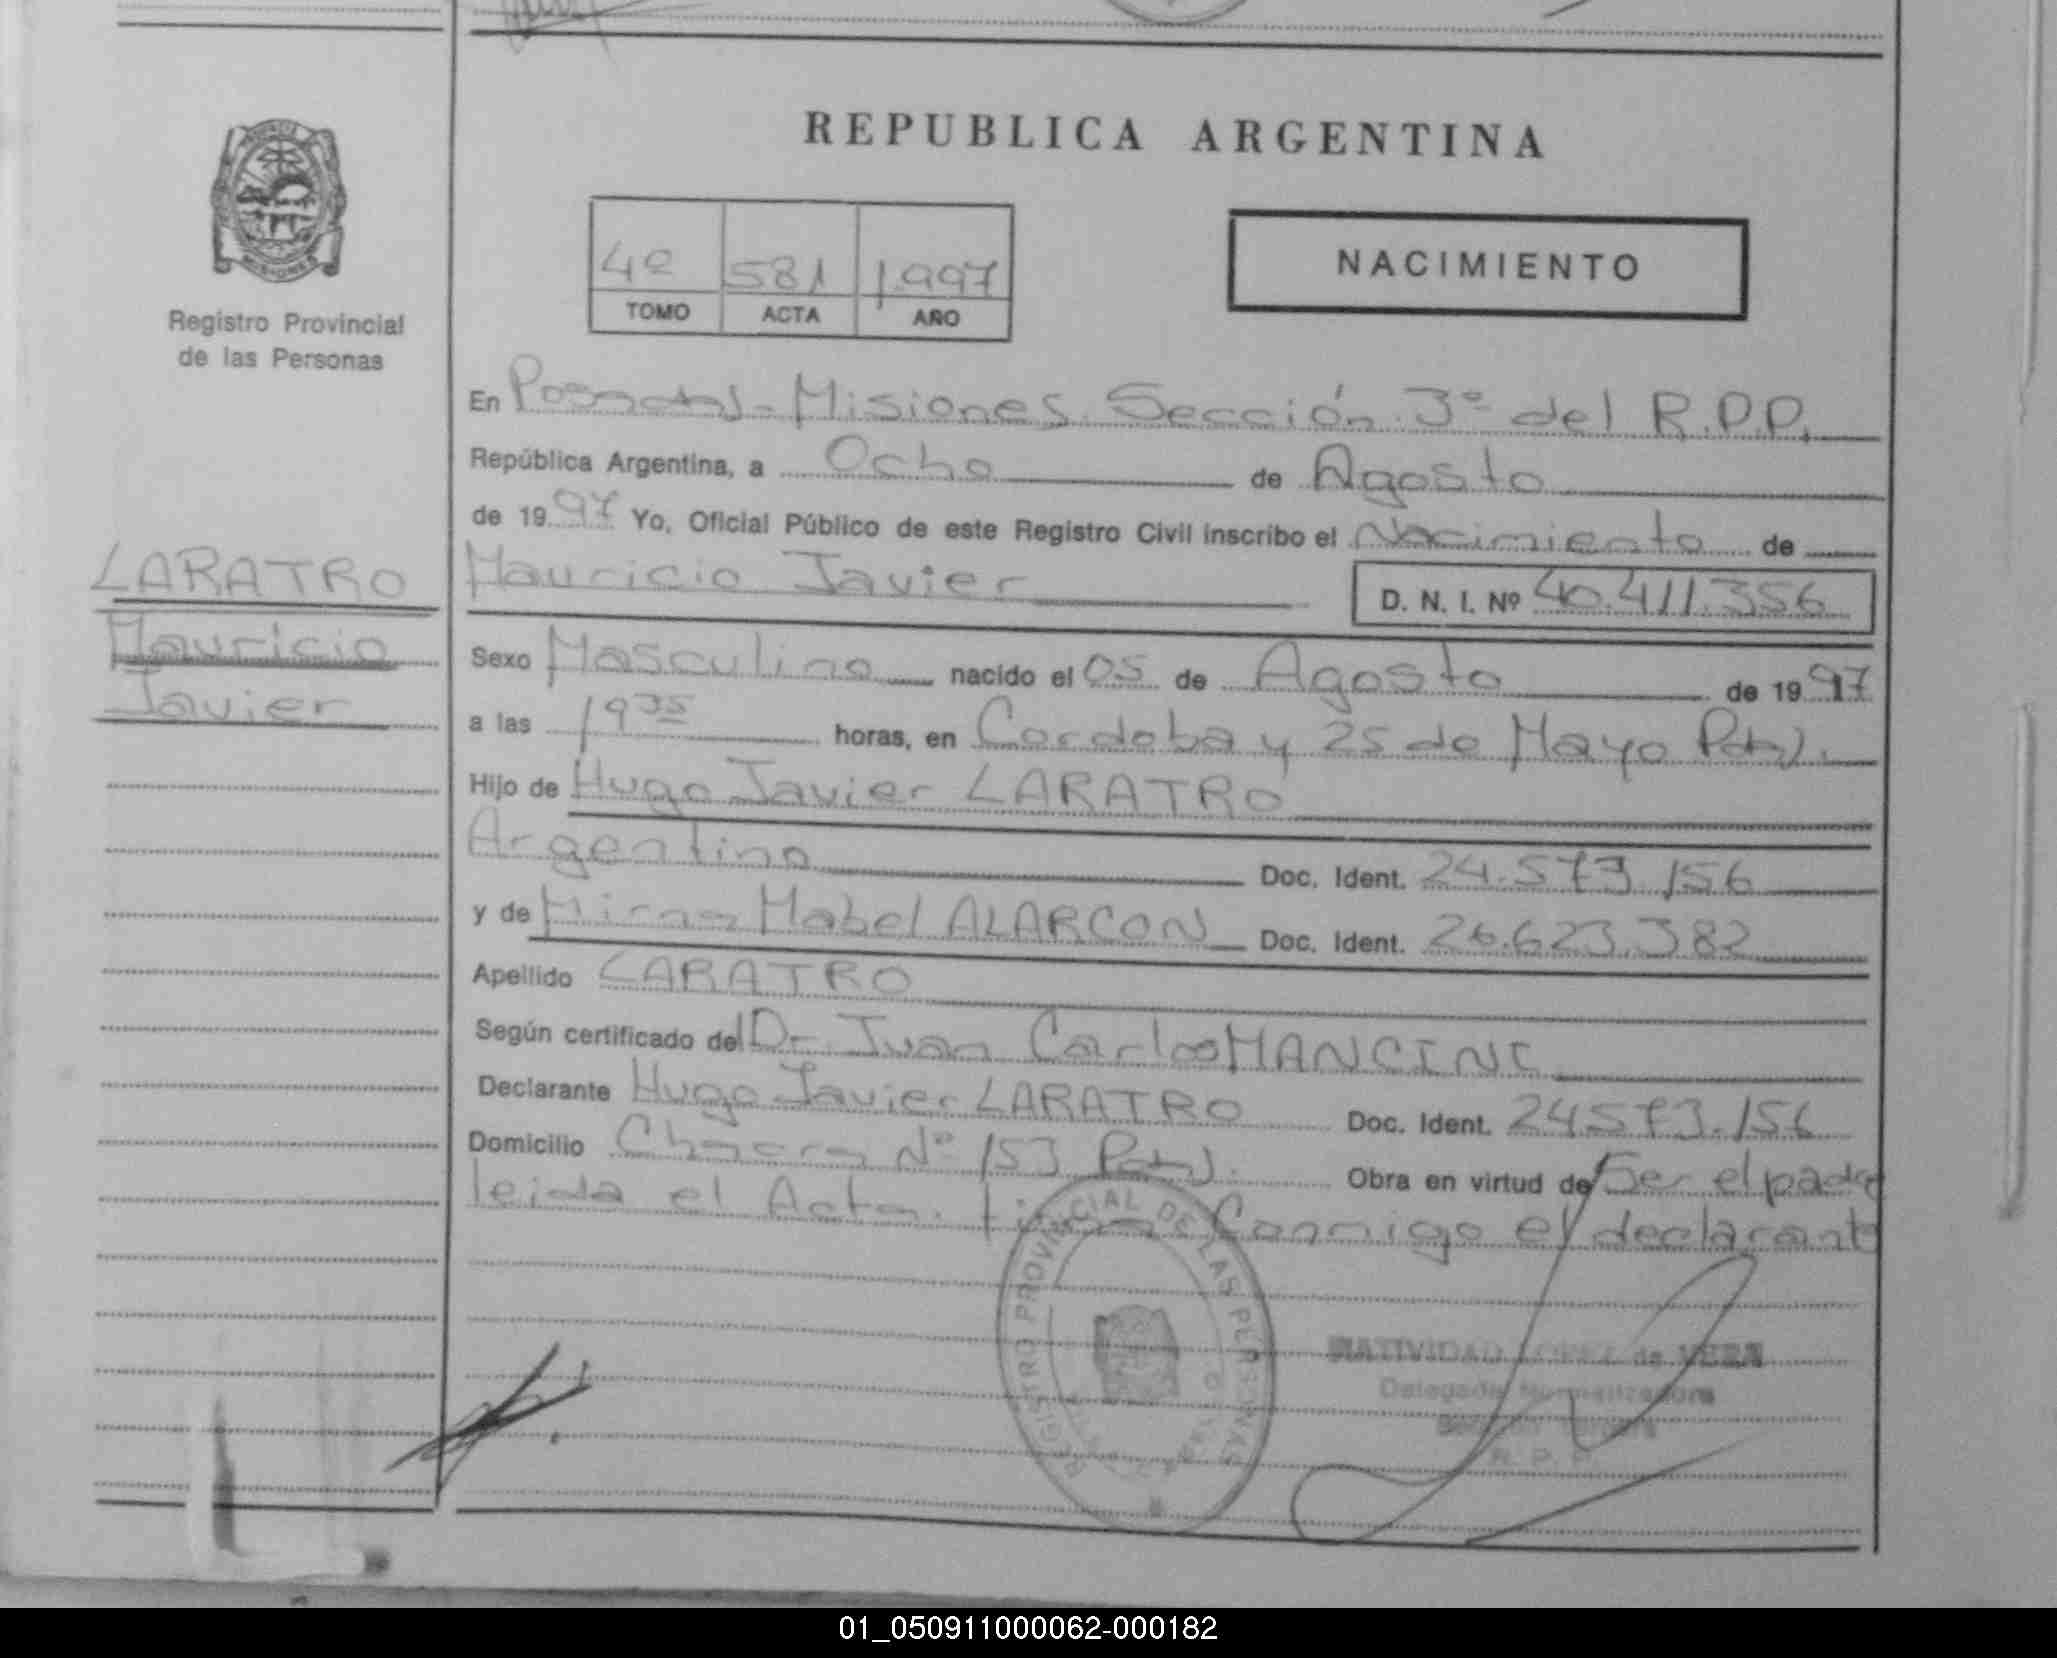 REPUBLICA ARGENTINA
MISIONES
Registro Provincial
de las Personas
4º 581 1.997
TOMO ACTA AÑO
NACIMIENTO
En Posadas - Misiones Sección 3º del R.P.P.
República Argentina, a Ocho de Agosto
de 1997 Yo, Oficial Público de este Registro Civil inscribo el Nacimiento de
LARATRO
Mauricio
Javier
Mauricio Javier D. N. I. Nº 40.411.356
Sexo Masculino nacido el 05 de Agosto de 1997
a las 19 35 horas, en Cordoba y 25 de Mayo Pdas.
Hijo de Hugo Javier LARATRO
Argentino Doc. Ident. 24.573.156
y de Mabel ALARCON Doc. Ident. 26.623.382
Apellido LARATRO
Según certificado del Dr. Juan Carlos MANCINI
Declarante Hugo Javier LARATRO Doc. Ident. 24.573.156
Domicilio Chacra Nº 153 Pdas. Obra en virtud de Ser el padre
leida el Acta. firma Conmigo el declarante
REGISTRO PROVINCIAL DE LAS PERSONAS
NATIVIDAD LOPEZ de VERA
Delegada Normalizadora
Sección Tercera
R. P. P.
01_050911000062-000182